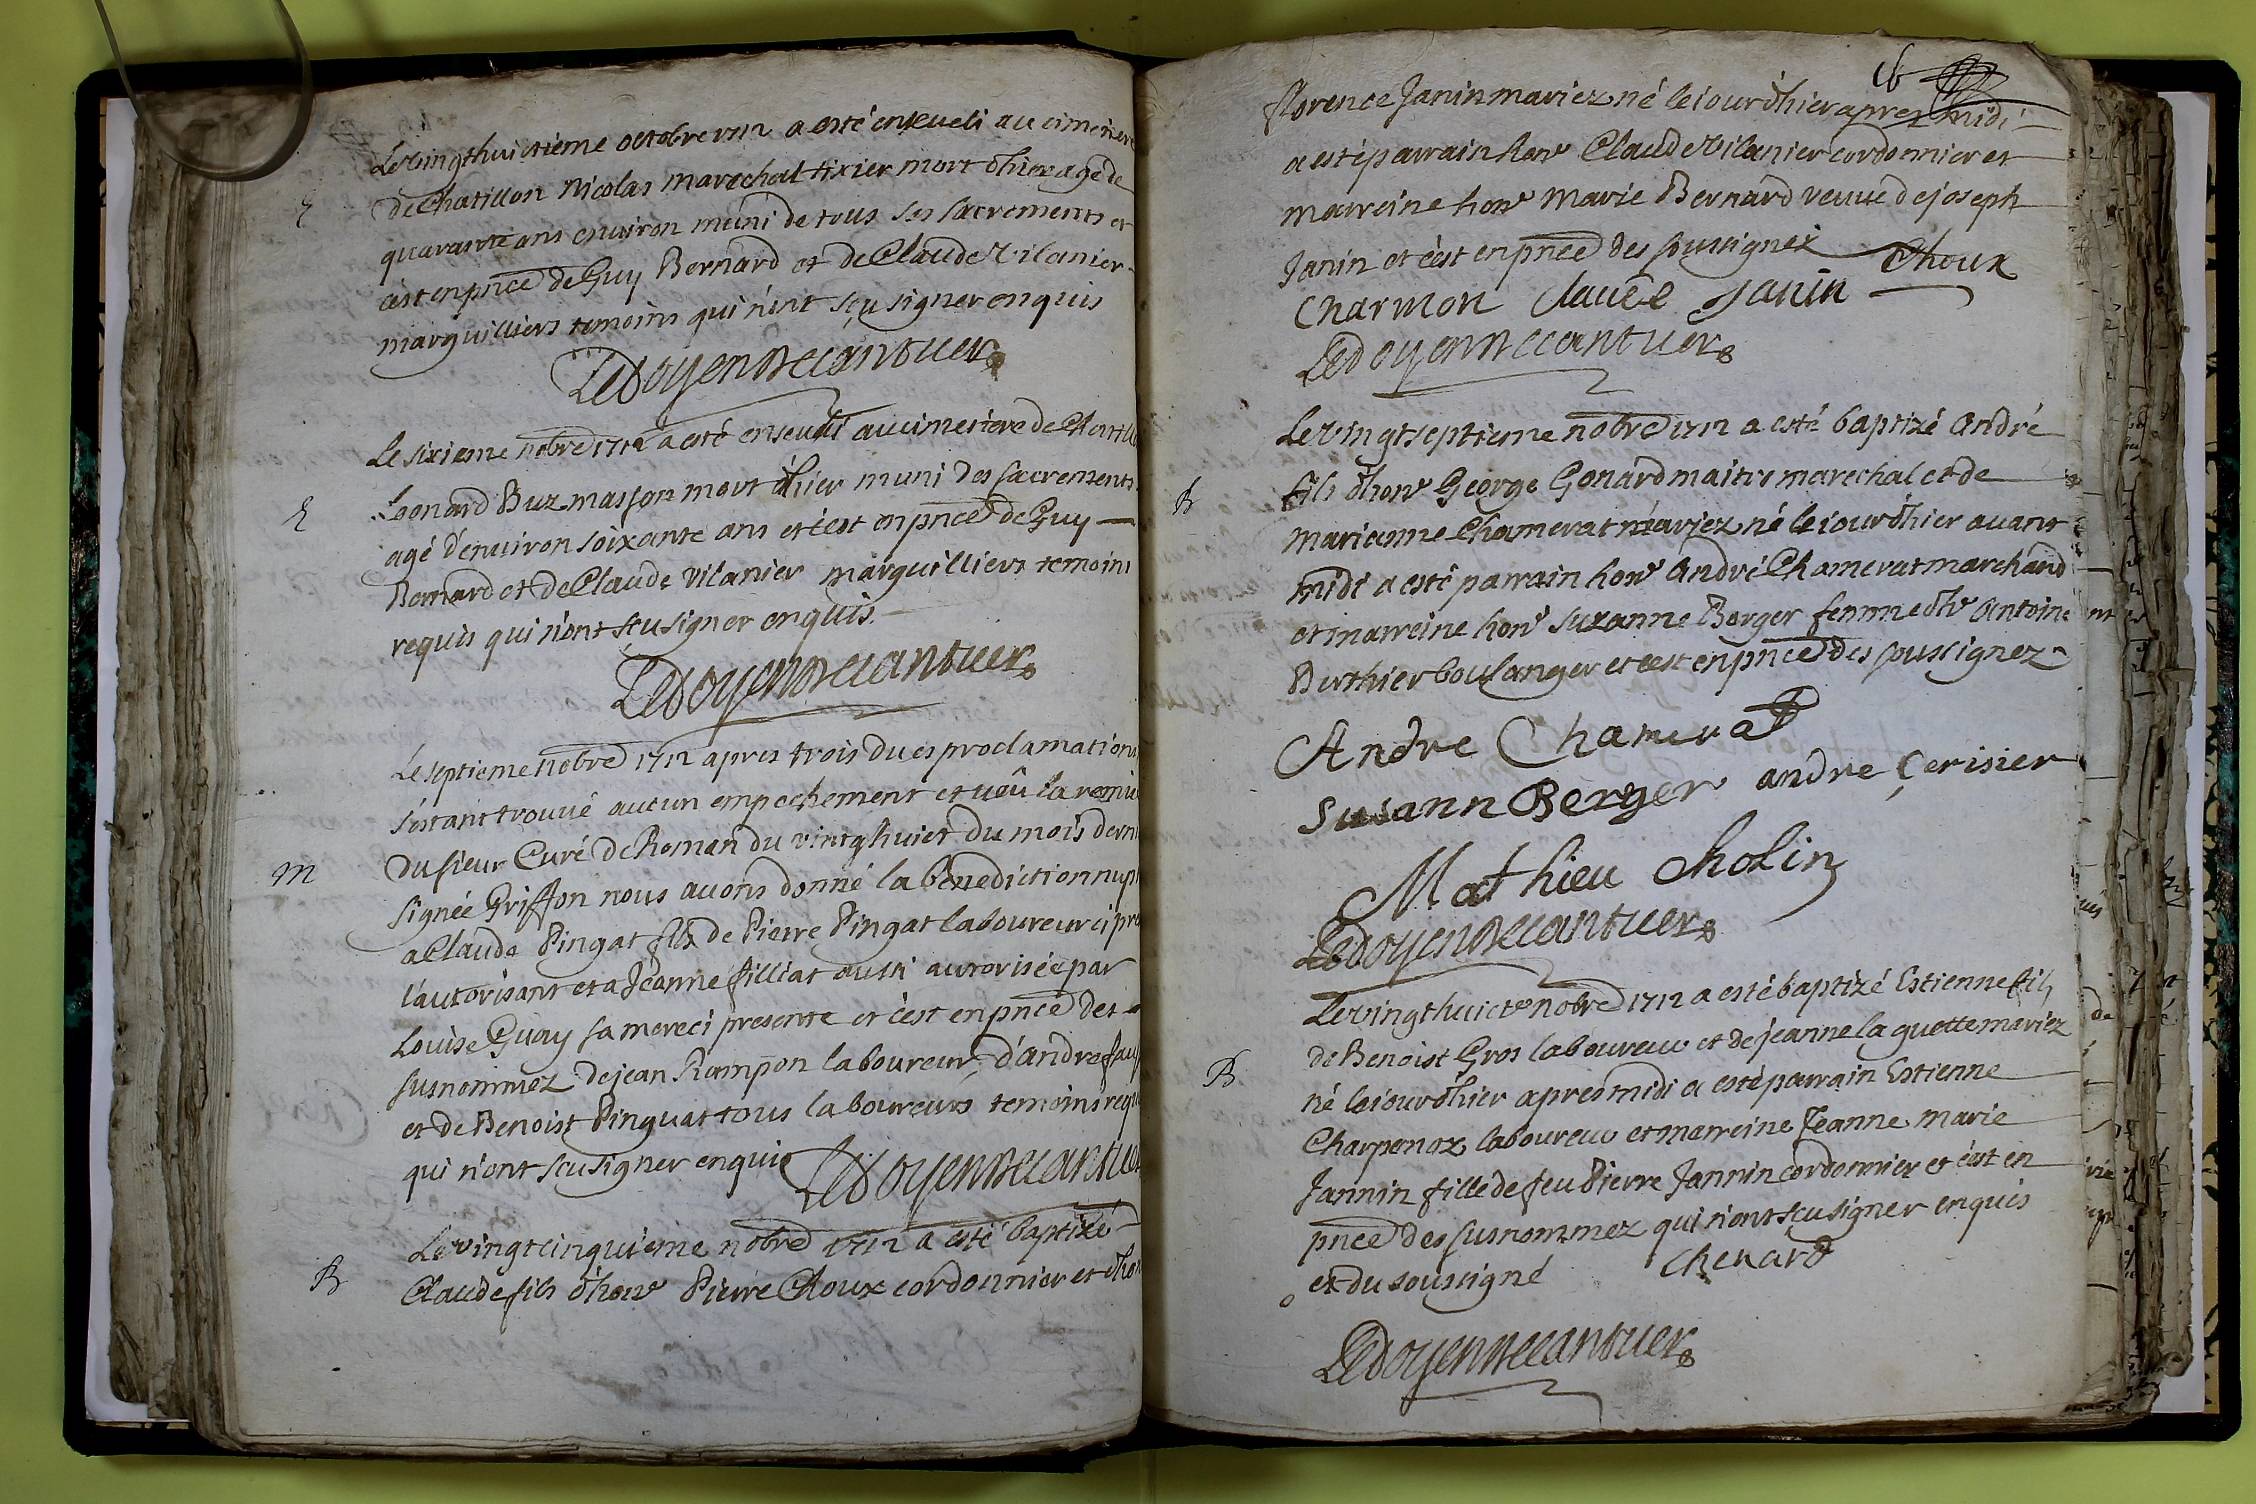 Le vingthuictieme octobre 1712 a esté enseveli au cimetiere
E
de Chatillon Nicolas marechal tixier mort d'hier agé de
quarante ans environ muni de tous ses sacrements et
c'est en pnce de Guy Bernard et de Claude Vilanier
marguilliers temoins qui n'ont sçu signer enquis
Ledoyen Decantuers
Le sixieme nobre 1712 a esté enseveli au cimetiere de Chatillo
E
Leonard Buz masson mort d'hier muni des sacrements
agé d'environ soixante ans et c'est en pnce de Guy
Bernard et de Claude Vilanier marguilliers temoins
requis qui n'ont sçu signer enquis
Ledoyen Decantuers
Le septieme nobre 1712 apres trois dues proclamations
s'estant trouvé aucun empechement et veû la remis
M
du sieur Curé de Roman du vintghuict du mois dern
signée Griffon nous avons donné la benediction nupt
a Claude Pingat fils de Pierre Pingat laboureur ci pre
l'autorisant et a Jeanne filliat aussi autorisée par
Louise Guay sa mere ci presente et c'est en pnce des
susnommez de jean Rampon laboureur, d'andre
et de Benoist Pinguat tous laboureurs temoins requ
qui n'ont scu signer enquis Ledoyen Decantuer
Le vingtcinquieme nobre 1712 a esté baptizé
B
Claude fils d'hone Pierre Choux cordonnier et d'hon
16
florence Janin mariez né le jour d'hier aprez midi
a esté parrain hone Claude Vilanier cordonnier et
marreine hone Marie Bernard veuve de joseph
Janin et c'est en pnce des soussignez Choux
Charmon Claude Janin
Ledoyen Decantuers
Le vingtseptieme nobre 1712 a esté baptizé André
B
fils d'hone George Gonard maitre marechal et de
marianne Chamerat mariez né le jour d'hier avant
midi a esté parrain hone André Chamerat marchand
et marreine hone suzanne Berger femme d'he Antoine
Berthier boulanger et c'est en pnce des soussignez
Andre Chamerat
Susann Berger andre Cerisier
Mathieu Cholin
Ledoyen Decantuers
Le vingthuicte nobre 1712 a esté baptizé Estienne fils
de Benoist Gros laboureur et de jeanne la guette mariez
B
né le jour d'hier apres midi a esté parrain Estienne
Charpenaz laboureur et marreine Jeanne Marie
Jannin fille de feu Pierre Jannin cordonnier et c'est en
pnce des susnommez qui n'ont scu signer enquis
et du soussigné Chenard
Ledoyen Decantuers